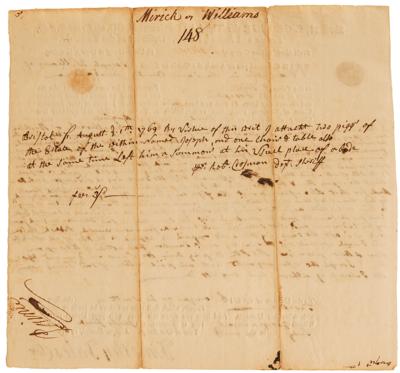 Mirick vs Williams
148
Bristol ss August ye 1th 1769 By Virtue of this writ I attacht two piggs of
the Estate of the within Named Joseph and one Chair & table also
at the same time Left him a Summons at his Usual place of abode
Robt Crosman Dept Sheriff
fees